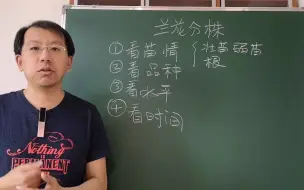 兰花分株
①看苗情{壮苗弱苗
根
②看品种
③看水平
④看时间
Nothing
is
PERMANENT